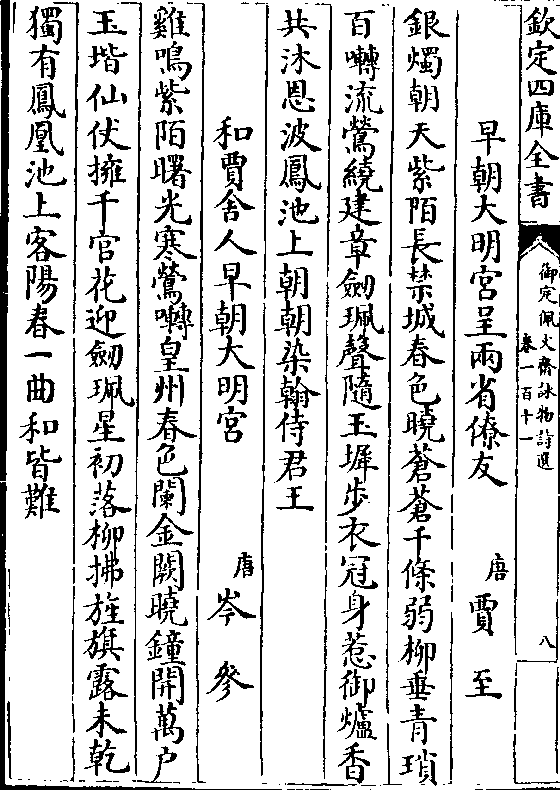 欽定四庫全書
御定佩文齋詠物詩選
卷一百十一
八
早朝大明宮呈兩省僚友
唐
賈至
銀燭朝天紫陌長禁城春色曉蒼蒼千條弱柳垂青瑣
百囀流鶯繞建章劒珮聲隨玉墀步衣冠身惹御爐香
共沐恩波鳳池上朝朝染翰侍君王
和賈舍人早朝大明宮
唐
岑參
雞鳴紫陌曙光寒鶯囀皇州春色闌金闕曉鐘開萬户
玉堦仙仗擁千官花迎劒珮星初落柳拂旌旗露未乾
獨有鳳凰池上客陽春一曲和皆難